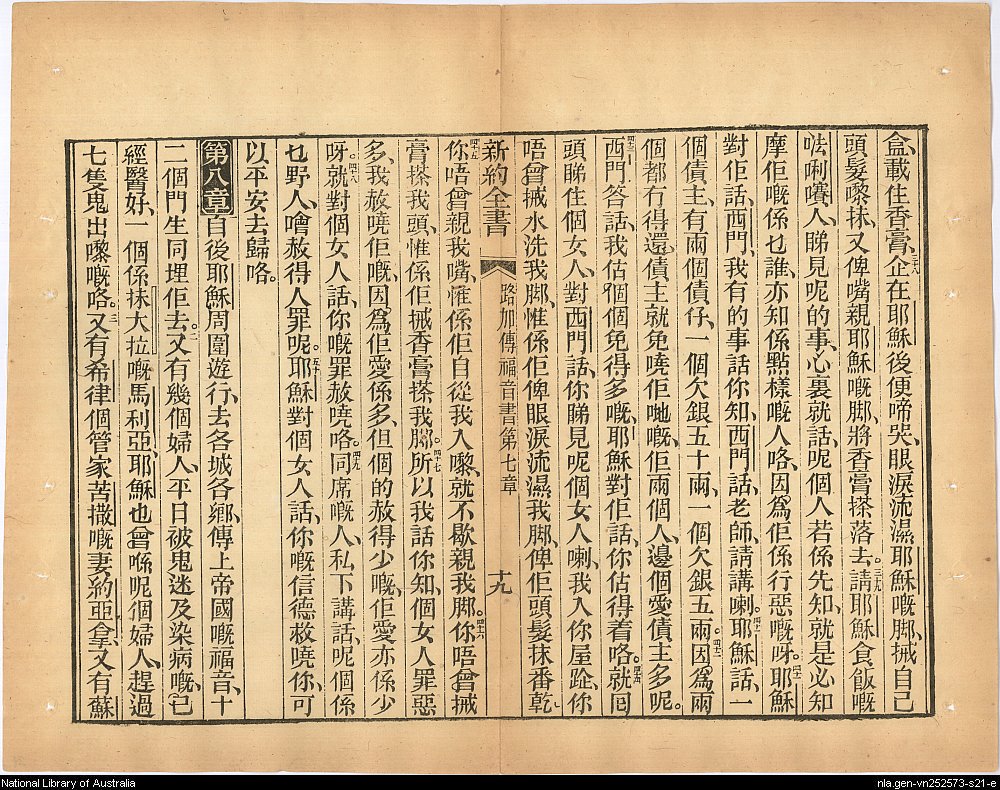 盒、載住香膏、三十八企在耶穌後便啼哭、眼淚流濕耶穌嘅脚、搣自己
頭髮嚟抹、又俾嘴親耶穌嘅脚、將香膏搽落去。三十九請耶穌食飯嘅
㗒唎嚽人、睇見呢的事、心裏就話、呢個人若係先知、就是必知
摩佢嘅係乜誰、亦知係點樣嘅人咯、因為佢係行惡嘅呀。四十耶穌
對佢話、西門、我有的事話你知、西門話、老師、請講喇。四十一耶穌話、一
個債主、有兩個債仔、一個欠銀五十兩、一個欠銀五兩。四十二因為兩
個都冇得還、債主就免嘵佢哋嘅、佢兩個人、邊個愛債主多呢。
四十三西門答話、我估個個免得多嘅、耶穌對佢話、你估得着咯。四十四就回
頭睇住個女人、對西門話、你睇見呢個女人喇、我入你屋跕、你
唔曾搣水洗我脚、惟係佢俾眼淚流濕我脚、俾佢頭髮抹番乾。
新約全書 路加傳福音書第七章 十九
四十五你唔曾親我嘴、惟係佢自從我入嚟、就不歇親我脚。四十六你唔曾搣
膏搽我頭、惟係佢搣香膏搽我脚。四十七所以我話你知、個女人罪惡
多、我赦嘵佢嘅、因為佢愛係多、但個的赦得少嘅、佢愛亦係少
呀。四十八就對個女人話、你嘅罪赦嘵咯。四十九同席嘅人、私下講話、呢個係
乜野人、噲赦得人罪呢。五十耶穌對個女人話、你嘅信德救嘵你、可
以平安去歸咯。
第八章 自後耶穌周圍遊行、去各城各鄉、傳上帝國嘅福音、十
二個門生同埋佢去。二又有幾個婦人、平日被鬼迷及染病嘅、已
經醫好、一個係抹大拉嘅馬利亞、耶穌也曾喺呢個婦人、趕過
七隻鬼出嚟嘅咯。三又有希律個管家苦撒嘅妻約亞拿、又有蘇
National Library of Australia
nla.gen-vn252573-s21-e